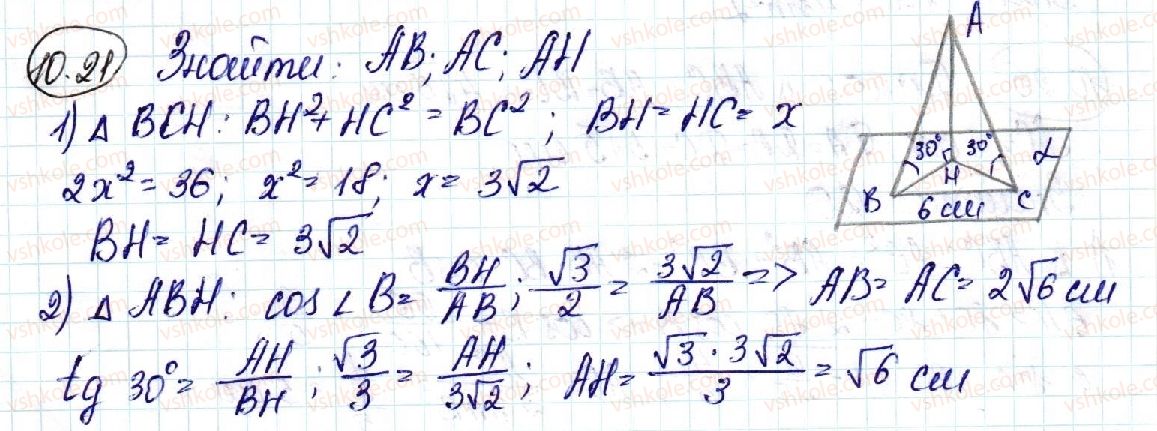 10.21 Знайти: AB; AC; AH
1) △ BCH: BH² + HC² = BC²; BH = HC = x
2x² = 36; x² = 18; x = 3√2
BH = HC = 3√2
2) △ ABH: cos ∠ B = BH/AB; √3/2 = 3√2/AB => AB = AC = 2√6 см
tg 30° = AH/BH; √3/3 = AH/3√2; AH = √3 · 3√2/3 = √6 см
A
30° 30° α
H
B C
6 см